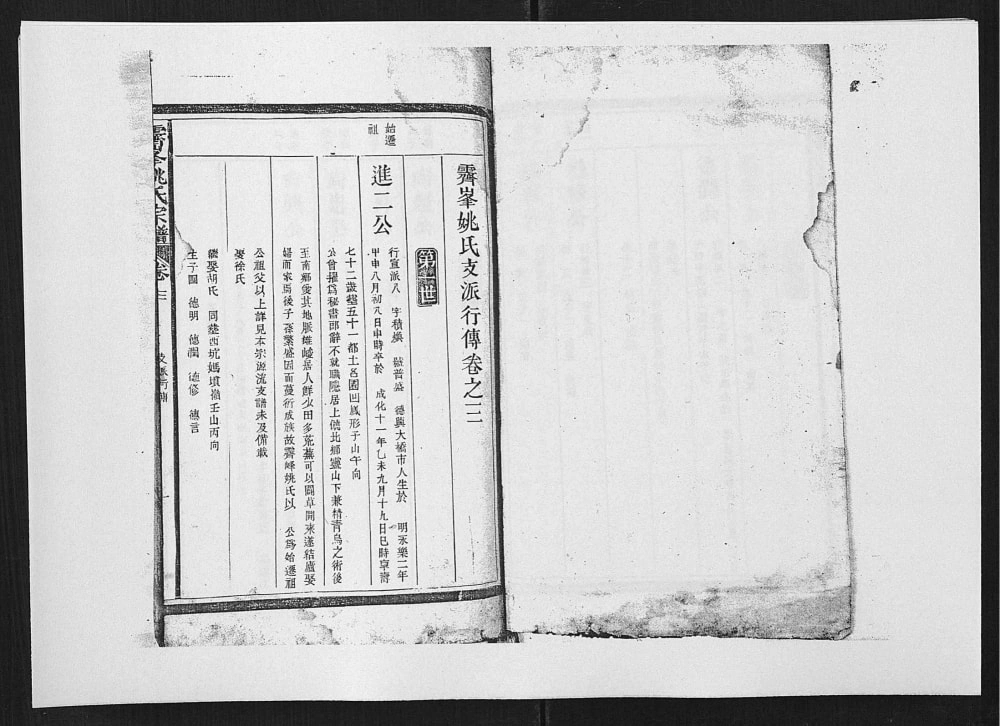 霽峯姚氏支派行傳卷之三
第一世
始遷
祖
進二公
行宣派八 字積嫉 號普盛 德興大橋市人生於 明永樂二年
甲申八月初八日申時卒於 成化十一年乙未九月十九日巳時享壽
七十二歲墓五十一都土名園凹鳳形子山午向
公曾擢爲秘書郎辭不就職隱居上饒北鄉靈山下兼精青烏之術後
至南鄉愛其地脈雄峻居人鮮少田多荒蕪可以闢草開來遂結廬娶
婦而家焉後子孫蕃盛因而蔓衍成族故霽峰姚氏以 公爲始遷祖
公祖父以上詳見本宗源流支譜未及備載
娶徐氏
繼娶胡氏 同墓西坑媽墳嶺壬山丙向
生子四 德明 德潤 德修 德言
霽峯姚氏宗譜 卷之三